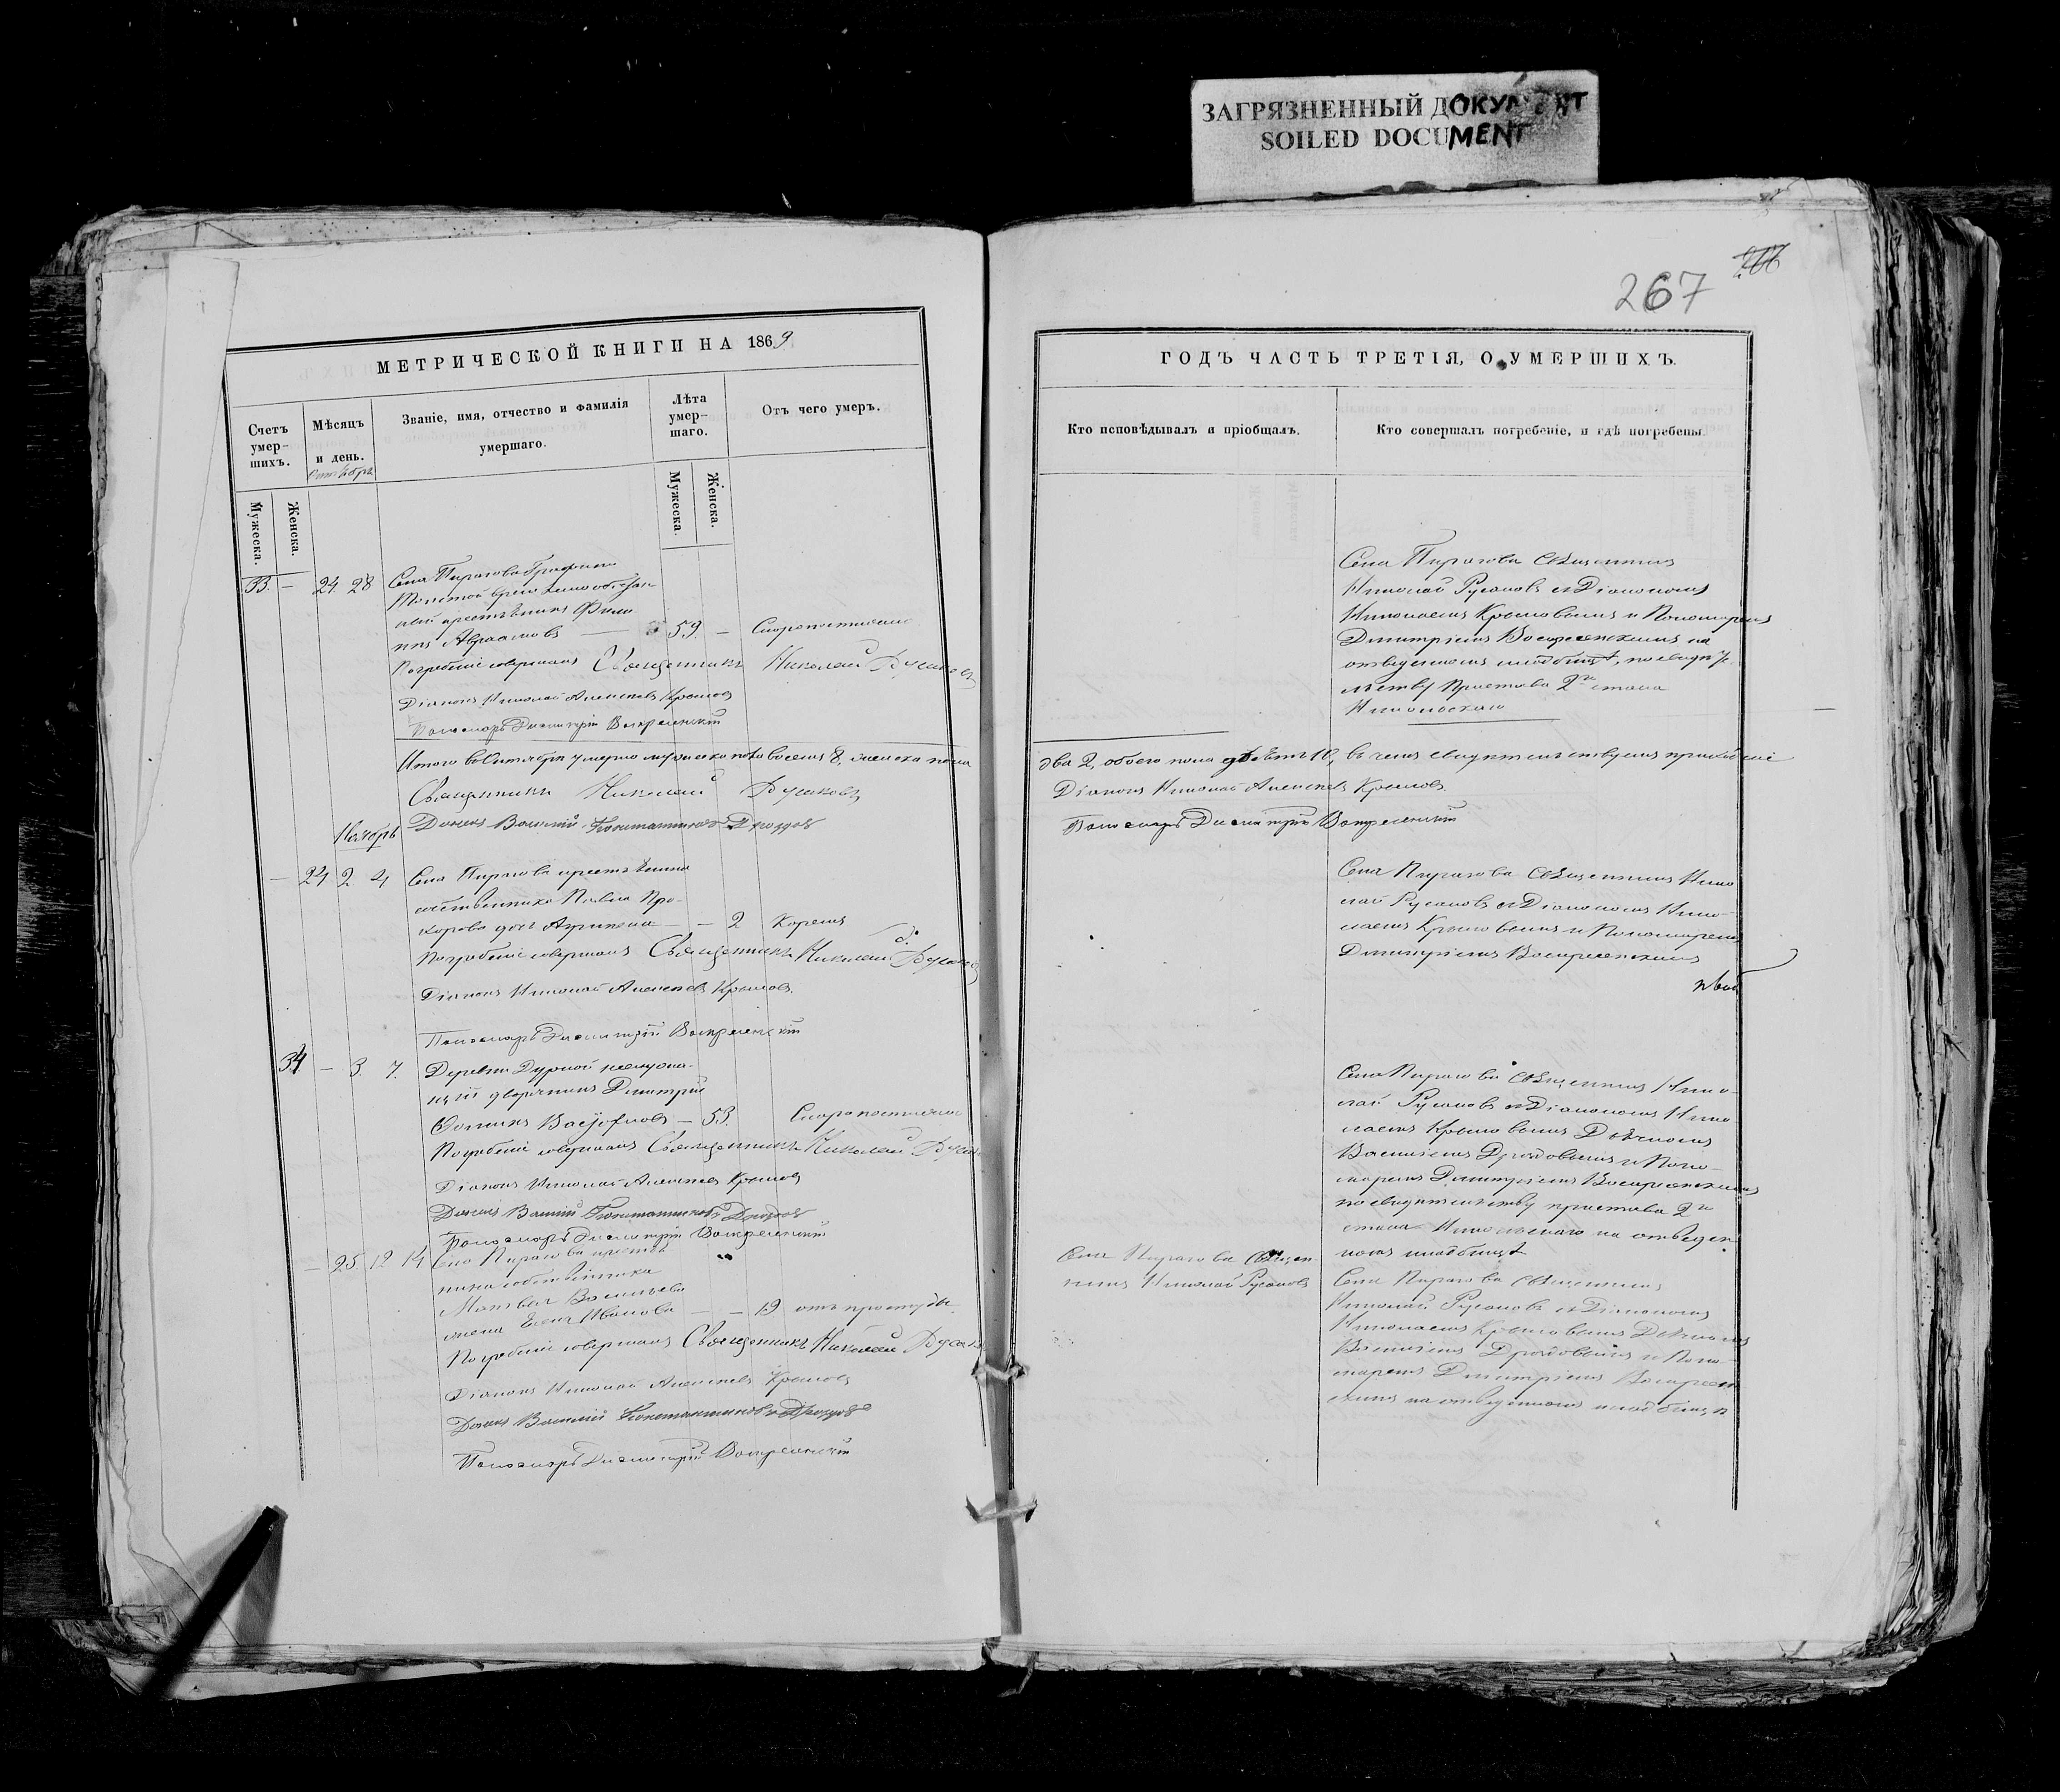 ЗАГРЯЗНЕННЫЙ ДОКУМЕНТ
SOILED DOCUMENT
267
266
МЕТРИЧЕСКОЙ КНИГИ НА 1869
Счетъ умер-шихъ.
Мѣсяцъ и день.
Званіе, имя, отчество и фамилія умершаго.
Лѣта умер-шаго.
Отъ чего умеръ.
Мужеска.
Женска.
Мужеска
Женска.
33. — 24 28 Села Пирогова Графини
Толстой временнообязан
ный крестьянинъ Фили
ппъ Авраамовъ — 59 — Скоропостижно
Погребеніе совершалъ Священникъ Николай Русановъ
Діаконъ Николай Алексѣевъ Крыловъ
Пономарь Димитрій Воскресенскій
Итого въ Октябрѣ умерло мужеска пола восемь 8, женска пола
Священникъ Николай Русановъ
Дьячекъ Василій Константиновъ Дроздовъ
Ноябрь
— 24 2 4 Села Пирогова крестьянина
собственника Павла Про-
хорова дочь Акулина — — 2 Корью
Погребеніе совершалъ Священникъ Николай Русановъ
Діаконъ Николай Алексѣевъ Крыловъ.
Пономарь Димитрій Воскресенскій
34 — 3. 7. Деревни
дворянинъ Димитрій
— 53. Скоропостижно
Погребеніе совершалъ Священникъ Николай
Діаконъ Николай Алексѣевъ Крыловъ
Дьячекъ Василій Константиновъ Дроздовъ
Пономарь Димитрій Воскресенскій
— 25 12 14 Села Пирогова крестья
нина собственника
Матвея Васильева
жена Елена Иванова — — 19 отъ простуды
Погребеніе совершалъ Священникъ Николай
Діаконъ Николай Алексѣевъ Крыловъ
Дьячекъ Василій Константиновъ Дроздовъ
Пономарь Димитрій Воскресенскій
ГОДЪ ЧАСТЬ ТРЕТІЯ, О УМЕРШИХЪ.
Кто исповѣдывалъ и пріобщалъ.
Кто совершалъ погребеніе, и гдѣ погребены.
Села Пирогова Священникъ
Николай Русановъ съ Діакономъ
Николаемъ Крыловымъ и Пономаремъ
Димитріемъ Воскресенскимъ на
отведенномъ кладбищѣ, по свидѣте
льству Пристава 2го стана
Никольскаго
два 2, обоего пола десять 10, въ чемъ свидѣтельствуемъ
Діаконъ Николай Алексѣевъ Крыловъ
Пономарь Димитрій Воскресенскій
Села Пирогова Священникъ Нико
лай Русановъ съ Діакономъ Нико-
лаемъ Крыловымъ и Пономаремъ
Димитріемъ Воскресенскимъ
Села Пирогова Священникъ Нико-
лай Русановъ съ Діакономъ Нико
лаемъ Крыловымъ Дьячкомъ
Василіемъ Дроздовымъ и Поно-
маремъ Димитріемъ Воскресенскимъ
по свидѣтельству пристава 2го
стана Никольскаго на отведен
номъ кладбищѣ
Села Пирогова Священ
никъ Николай Русановъ
Села Пирогова Священникъ
Николай Русановъ съ Діакономъ
Николаемъ Крыловымъ Дьячкомъ
Василіемъ Дроздовымъ и Поно-
маремъ Димитріемъ Воскресен
скимъ на отведенномъ кладбищѣ